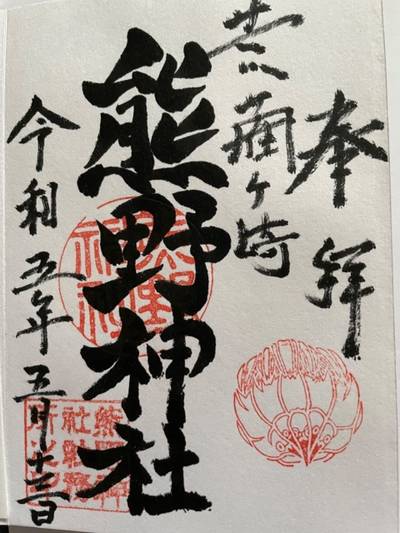 奉拝
ヶ崎
熊野神社
熊野神社
令和五年五月十三日
熊野神
社社務
所之印